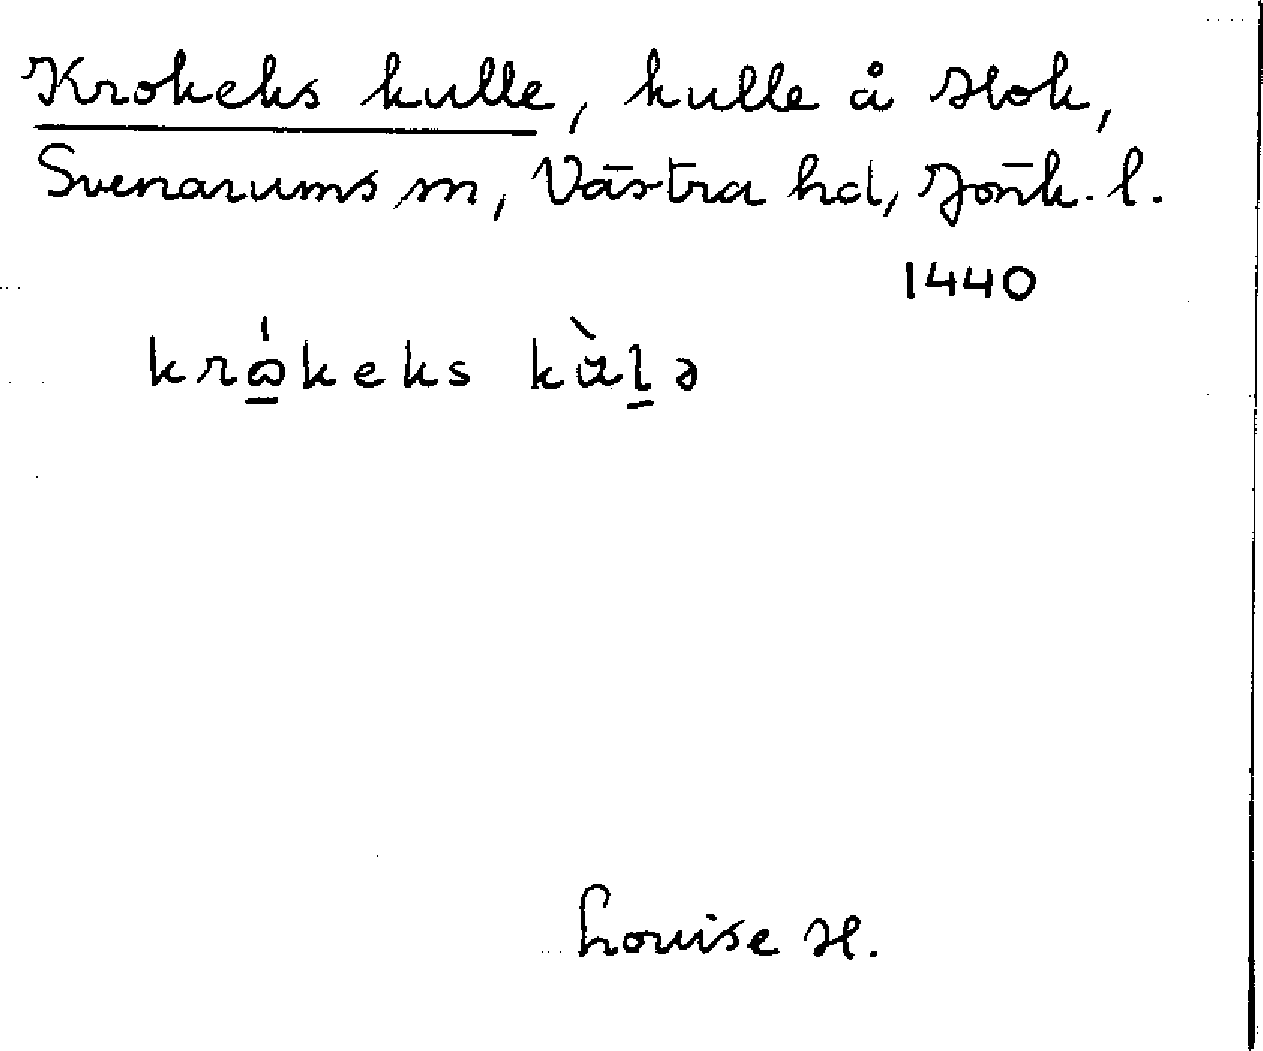 Krokeks kulle, kulle å Hok,
Svenarums sn, Västra hd, Jönk. l.
1440
krώ̲keks kὰl̲ə
Louise H.